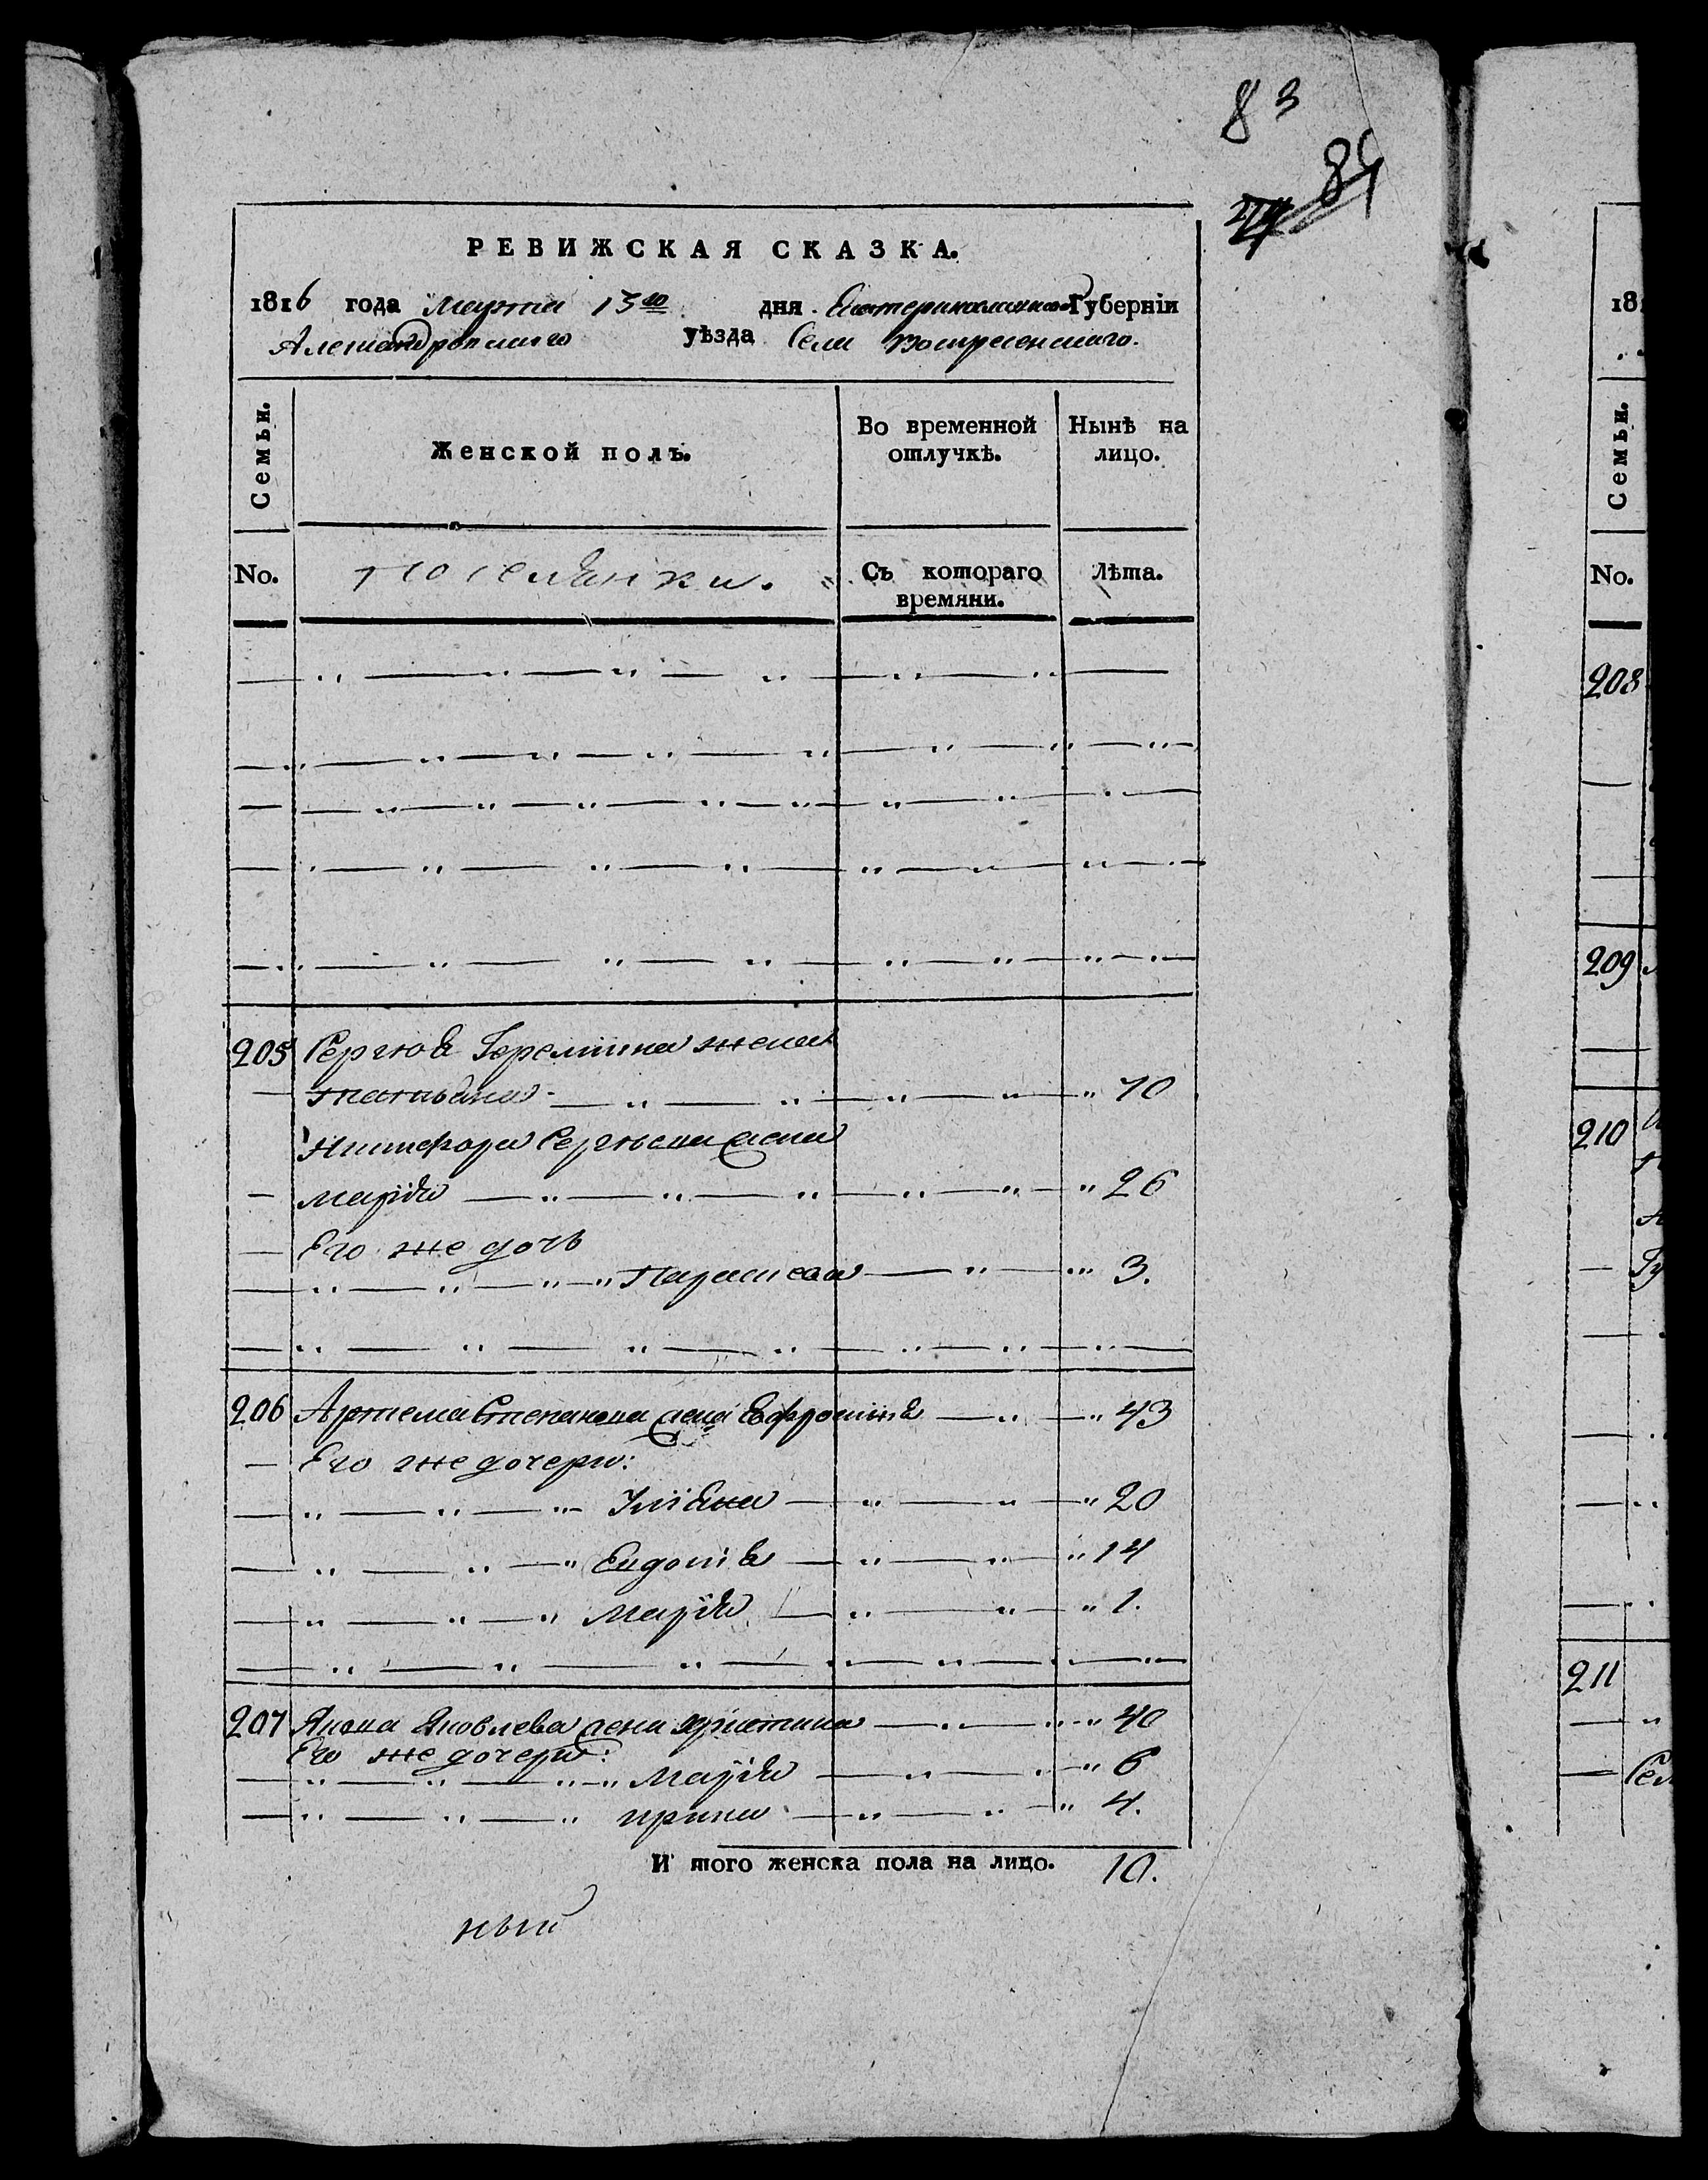 83
84
РЕВИЖСКАЯ СКАЗКА.
1816 года Марта 15го дня Екатеринославской Губерніи
Александровскаго уѣзда Села Воскресенскаго.
Семьи.
Женской полъ.
Во временной отлучкѣ.
Нынѣ на лицо.
No.
поселянки.
Съ котораго времяни.
Лѣта.
205 Сергѣя жена
татьяна 70
Никифора Сергѣева жена
марія 26
Его же дочь
Параскева 3.
206 Артема Степанова жена Ефросинія 43
Его же дочери:
Уліяна 20
Евдокія 14
Марія 1.
207 Якова Яковлева жена христина 40
Его же дочери:
Марія 6
ирина 4.
И того женска пола на лицо. 10.
ный
181
Семьи.
No.
208
209
210
211